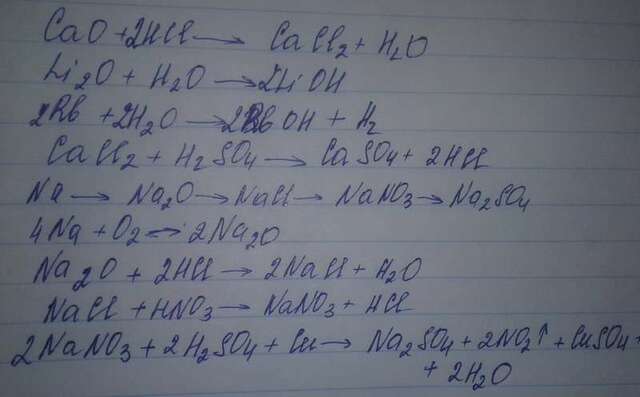 CaO + 2HCl → CaCl₂ + H₂O
Li₂O + H₂O → 2LiOH
2Rb + 2H₂O → 2RbOH + H₂
CaCl₂ + H₂SO₄ → CaSO₄ + 2HCl
Na → Na₂O → NaCl → NaNO₃ → Na₂SO₄
4Na + O₂ → 2Na₂O
Na₂O + 2HCl → 2NaCl + H₂O
NaCl + HNO₃ → NaNO₃ + HCl
2NaNO₃ + 2H₂SO₄ + Cu → Na₂SO₄ + 2NO₂↑ + CuSO₄ +
+ 2H₂O